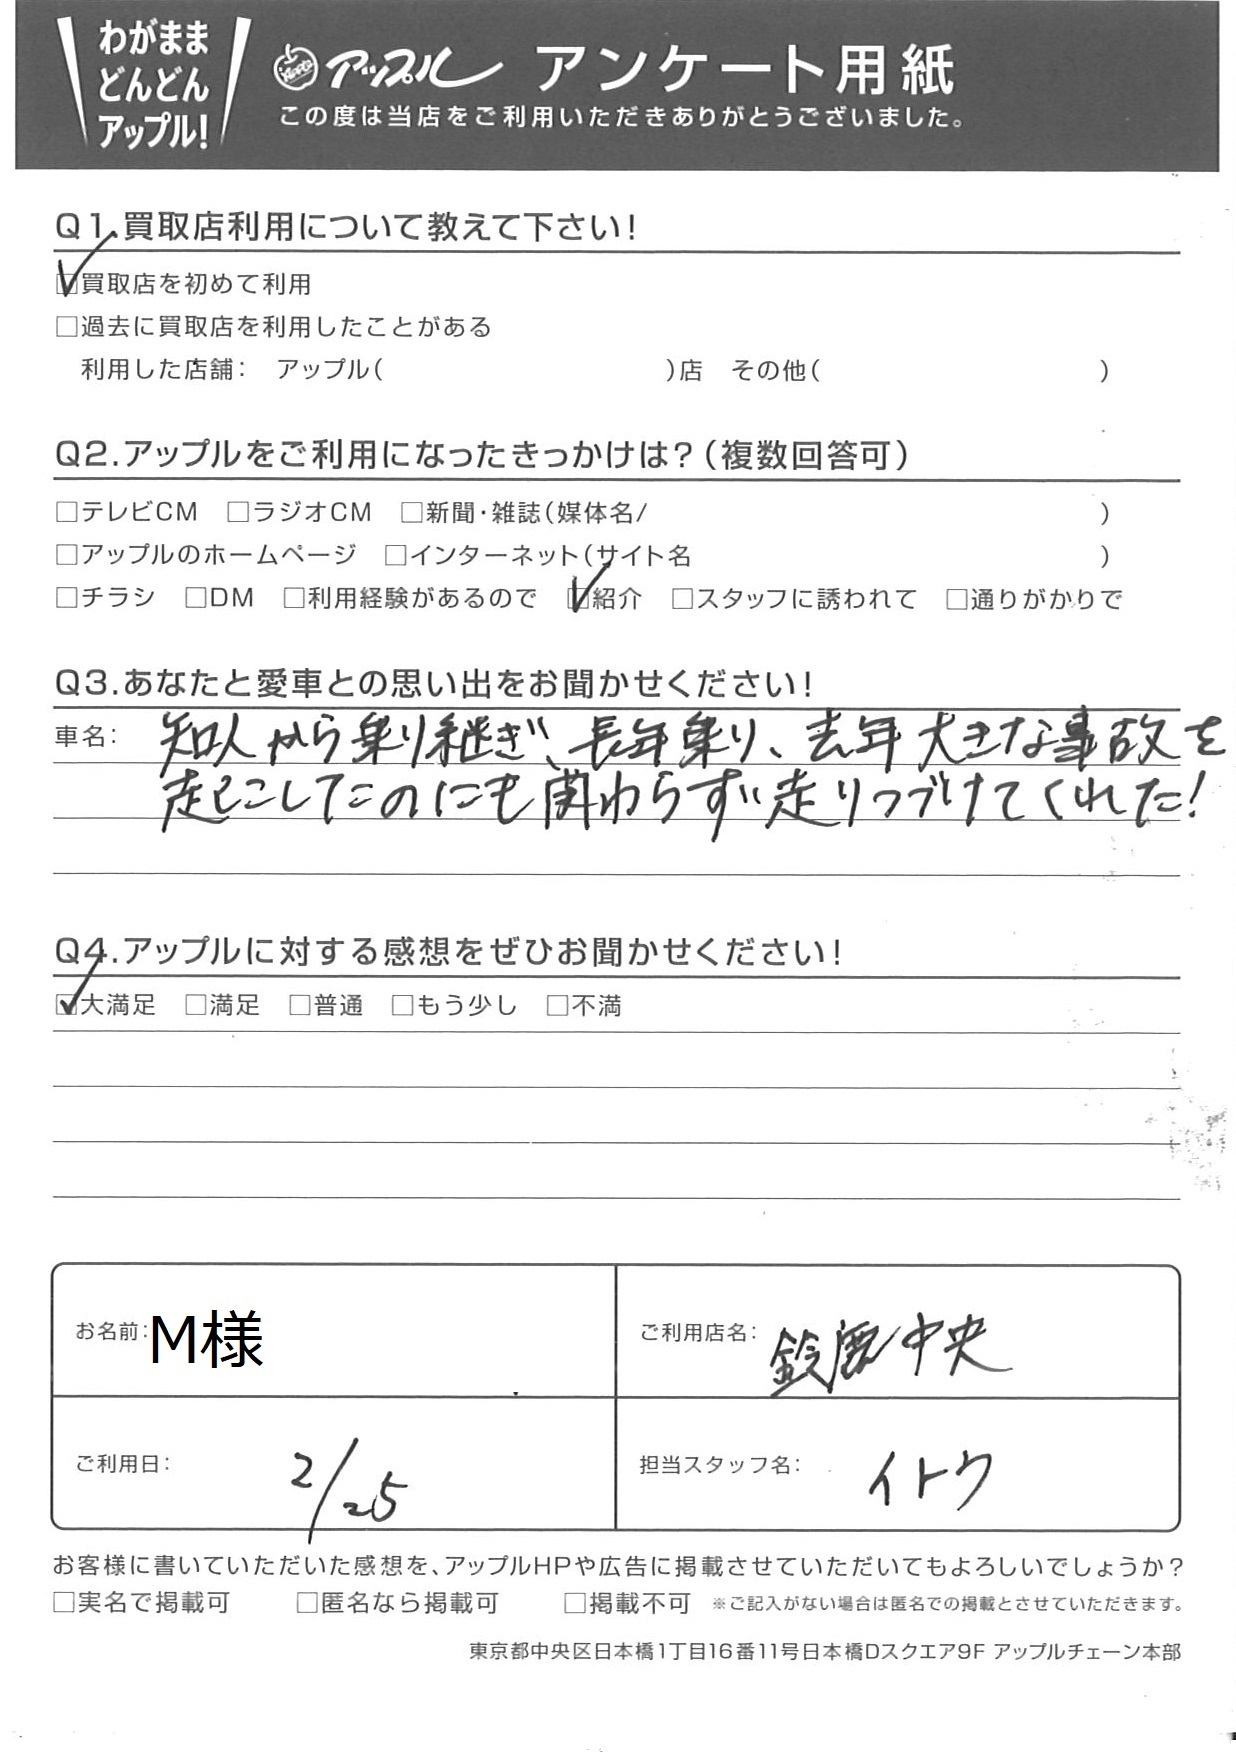 わがまま
どんどん
アップル!
アップル アンケート用紙
この度は当店をご利用いただきありがとうございました。
Q1.買取店利用について教えて下さい!
☑買取店を初めて利用
□過去に買取店を利用したことがある
利用した店舗: アップル( )店 その他( )
Q2.アップルをご利用になったきっかけは?(複数回答可)
□テレビCM □ラジオCM □新聞・雑誌(媒体名/ )
□アップルのホームページ □インターネット(サイト名 )
□チラシ □DM □利用経験があるので ☑紹介 □スタッフに誘われて □通りがかりで
Q3.あなたと愛車との思い出をお聞かせください!
車名: 知人から乗り継ぎ、長年乗り、去年大きな事故を
起こしたのにも関わらず走りつづけてくれた!
Q4.アップルに対する感想をぜひお聞かせください!
☑大満足 □満足 □普通 □もう少し □不満
お名前:M様
ご利用店名: 鈴鹿中央
ご利用日: 2/25
担当スタッフ名: イトウ
お客様に書いていただいた感想を、アップルHPや広告に掲載させていただいてもよろしいでしょうか?
□実名で掲載可 □匿名なら掲載可 □掲載不可 ※ご記入がない場合は匿名での掲載とさせていただきます。
東京都中央区日本橋1丁目16番11号日本橋Dスクエア9F アップルチェーン本部